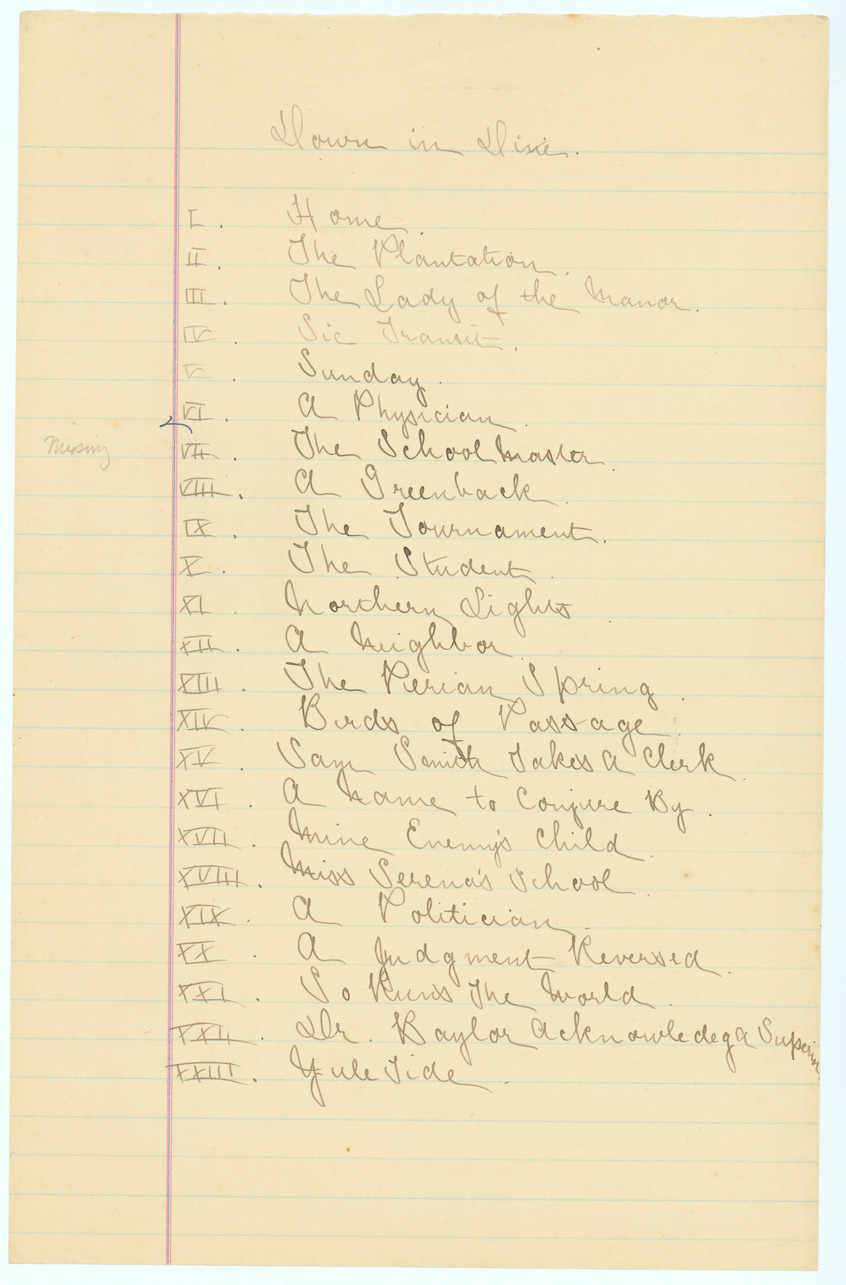 Down in Dixie.
I. Home.
II. The Plantation.
III. The Lady of the Manor.
IV. Sic Transit.
V. Sunday.
VI. A Physician.
Missing VII. The Schoolmaster.
VIII. A Greenback.
IX. The Tournament.
X. The Student.
XI. Northern Lights.
XII. A Neighbor.
XIII. The Pierian Spring.
XIV. Birds of Passage.
XV. Sam Smith Takes A Clerk.
XVI. A Name to Conjure By.
XVII. Mine Enemy's Child.
XVIII. Miss Serena's School.
XIX. A Politician.
XX. A Judgment Reversed.
XXI. So Runs The World.
XXII. Dr. Baylor Acknowledeg A Superior.
XXIII. Yule Tide.